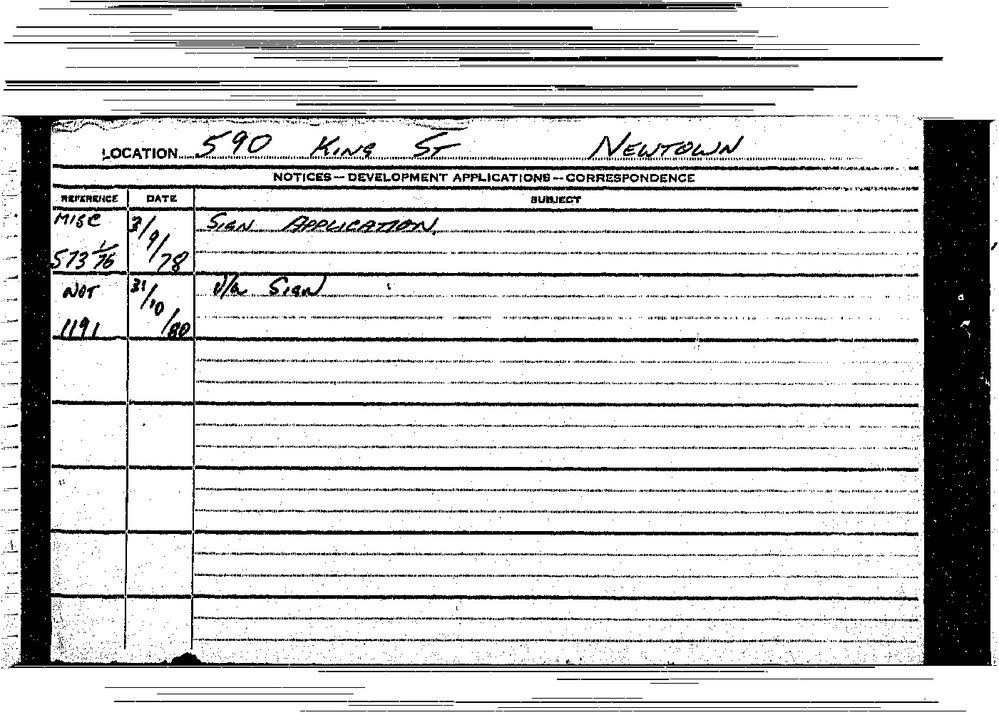 LOCATION 590 KING ST NEWTOWN
NOTICES — DEVELOPMENT APPLICATIONS — CORRESPONDENCE
REFERENCE DATE SUBJECT
MISC 3/9/78 SIGN APPLICATION.
573 1/76
NOT 31/10/80 U/A SIGN
1191